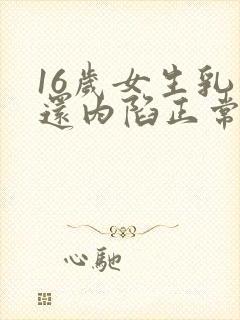 16歲女生乳
還内陷正常
心馳